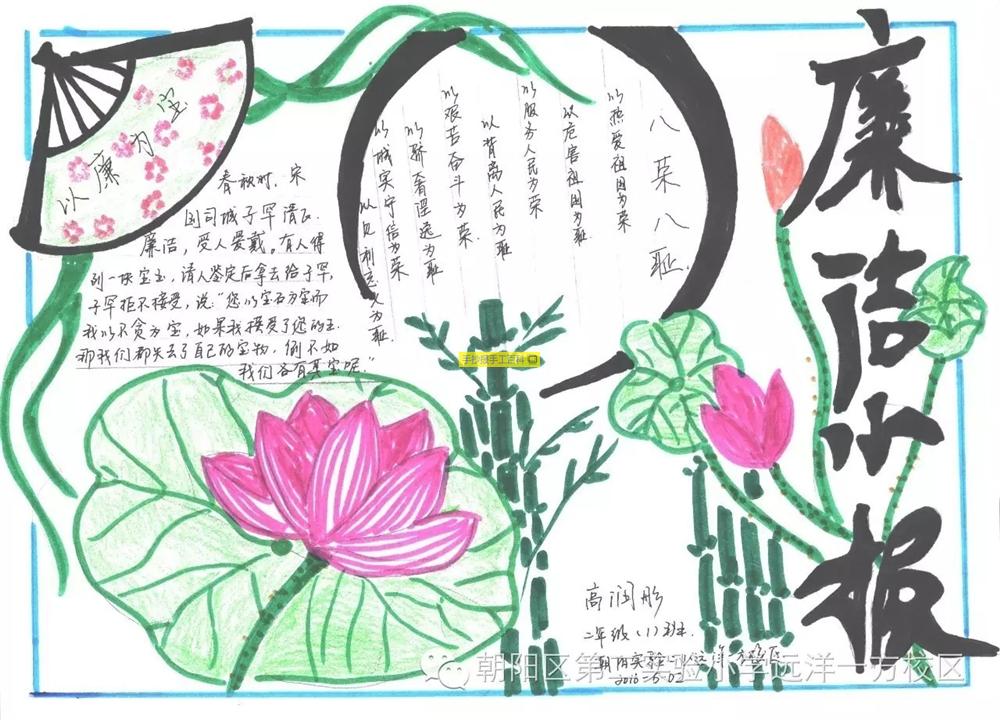 廉洁小报
以廉为宝
春秋时，宋
国司城子罕清正
廉洁，受人爱戴。有人得
到一块宝玉，请人鉴定后拿去给子罕，
子罕拒不接受，说：“您以宝石为宝而
我以不贪为宝，如果我接受了您的玉
那我们都失去了自己的宝物，倒不如
我们各有其宝呢。”
八荣八耻
以热爱祖国为荣
以危害祖国为耻
以服务人民为荣
以背离人民为耻
以艰苦奋斗为荣
以骄奢淫逸为耻
以诚实守信为荣
以见利忘义为耻
手抄报手工百科
高润彤
二年级（1）班
朝阳实验小学远洋一方校区
2016-6-02
朝阳区第二实验小学远洋一方校区